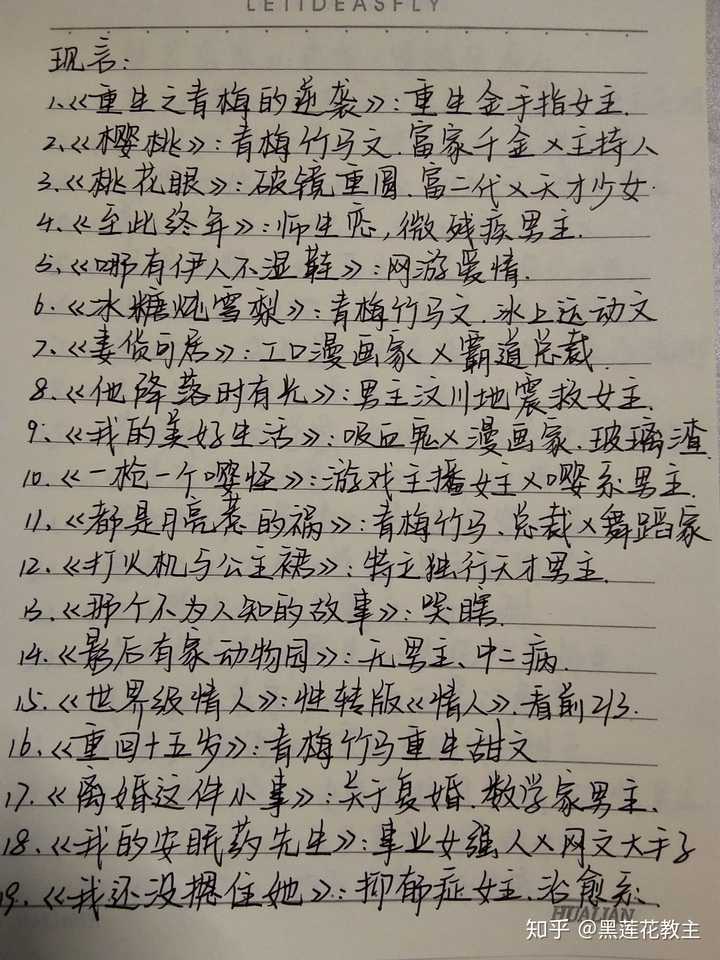 LEIIDEASFLY
现言:
1.《重生之青梅的逆袭》:重生金手指女主.
2.《樱桃》:青梅竹马文.富家千金×主持人
3.《桃花眼》:破镜重圆.富二代×天才少女.
4.《至此终年》:师生恋,微残疾男主.
5.《哪有伊人不湿鞋》:网游爱情.
6.《冰糖炖雪梨》:青梅竹马文.冰上运动文
7.《妻货可居》:工口漫画家×霸道总裁.
8.《他降落时有光》:男主汶川地震救女主.
9.《我的美好生活》:吸血鬼×漫画家.玻璃渣.
10.《一枪一个嘤怪》:游戏主播女主×嘤系男主.
11.《都是月亮惹的祸》:青梅竹马、总裁×舞蹈家
12.《打火机与公主裙》:特立独行天才男主.
13.《那个不为人知的故事》:哭瞎.
14.《最后有家动物园》:无男主、中二病.
15.《世界级情人》:性转版《情人》.看前2/3.
16.《重回十五岁》:青梅竹马重生甜文
17.《离婚这件小事》:关于复婚.数学家男主.
18.《我的安眠药先生》:事业女强人×网文大手子
19.《我还没摁住她》:抑郁症女主.治愈系.
HUALIAN
知乎 @黑莲花教主